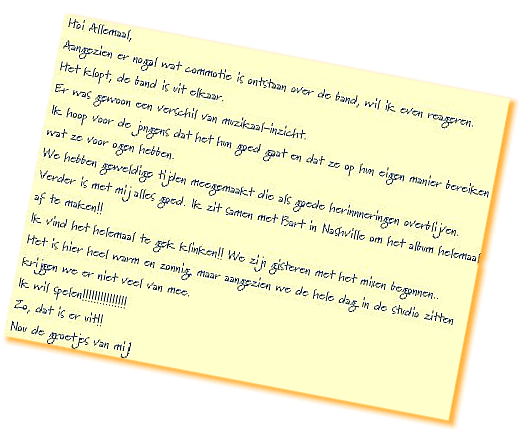 Hoi Allemaal,
Aangezien er nogal wat commotie is ontstaan over de band, wil ik even reageren.
Het klopt, de band is uit elkaar.
Er was gewoon een verschil van muzikaal-inzicht.
Ik hoop voor de jongens dat het hun goed gaat en dat ze op hun eigen manier bereiken
wat ze voor ogen hebben.
We hebben geweldige tijden meegemaakt die als goede herinneringen overblijven.
Verder is met mij alles goed. Ik zit samen met Bart in Nashville om het album helemaal
af te maken!!
Ik vind het helemaal te gek klinken!! We zijn gisteren met het mixen begonnen..
Het is hier heel warm en zonnig, maar aangezien we de hele dag in de studio zitten
krijgen we er niet veel van mee.
Ik wil spelen!!!!!!!!!!!!!!!
Zo, dat is er uit!!
Nou de groetjes van mij